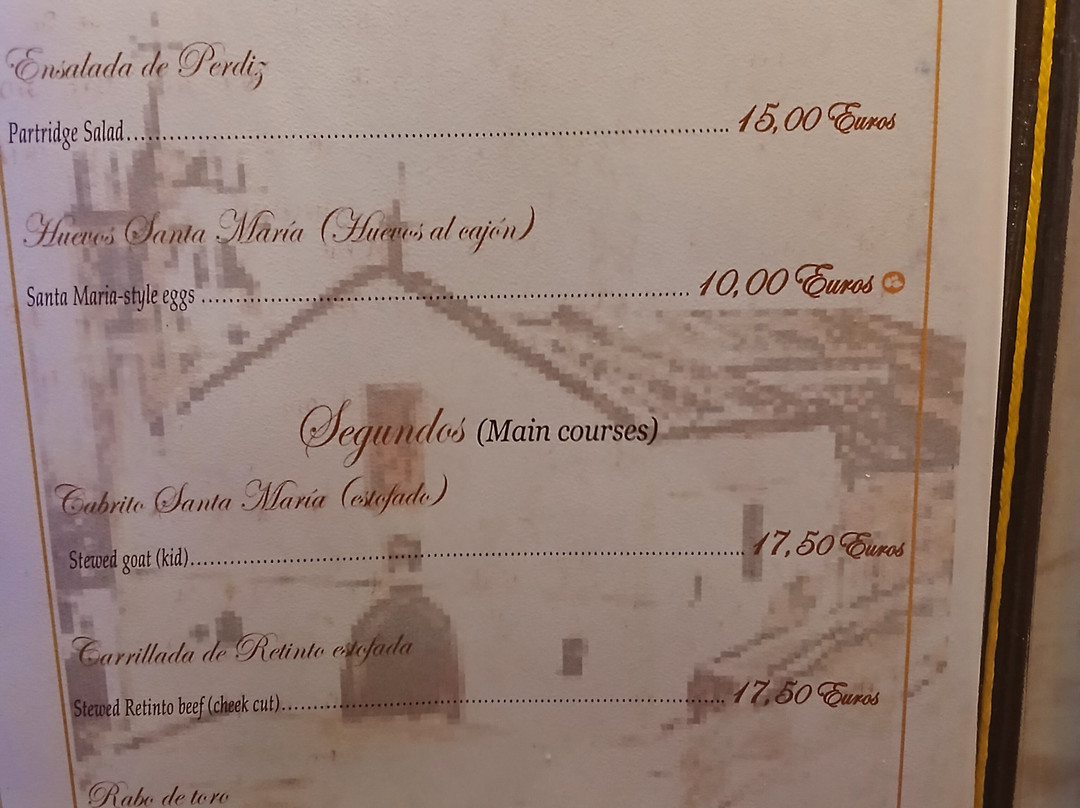 Ensalada de Perdiz
Partridge Salad........................................................................ 15,00 Euros
Huevos Santa María (Huevos al cajón)
Santa Maria-style eggs ............................................................ 10,00 Euros
Segundos (Main courses)
Cabrito Santa María (estofado)
Stewed goat (kid)..................................................................... 17,50 Euros
Carrillada de Retinto estofada
Stewed Retinto beef (cheek cut)....................................................... 17,50 Euros
Rabo de toro